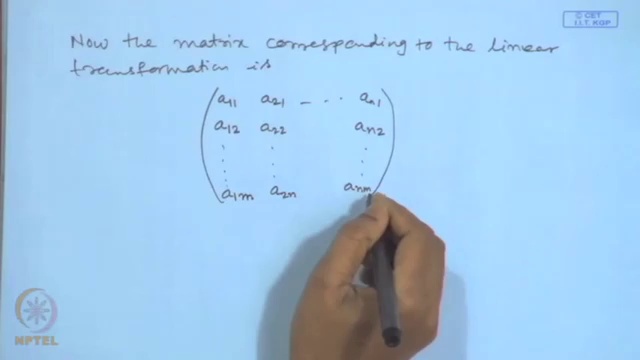 © CET
I.I.T. KGP
Now the matrix corresponding to the linear
transformation is
a11 a21 - . . . an1
a12 a22 an2
a1m a2n anm
NPTEL